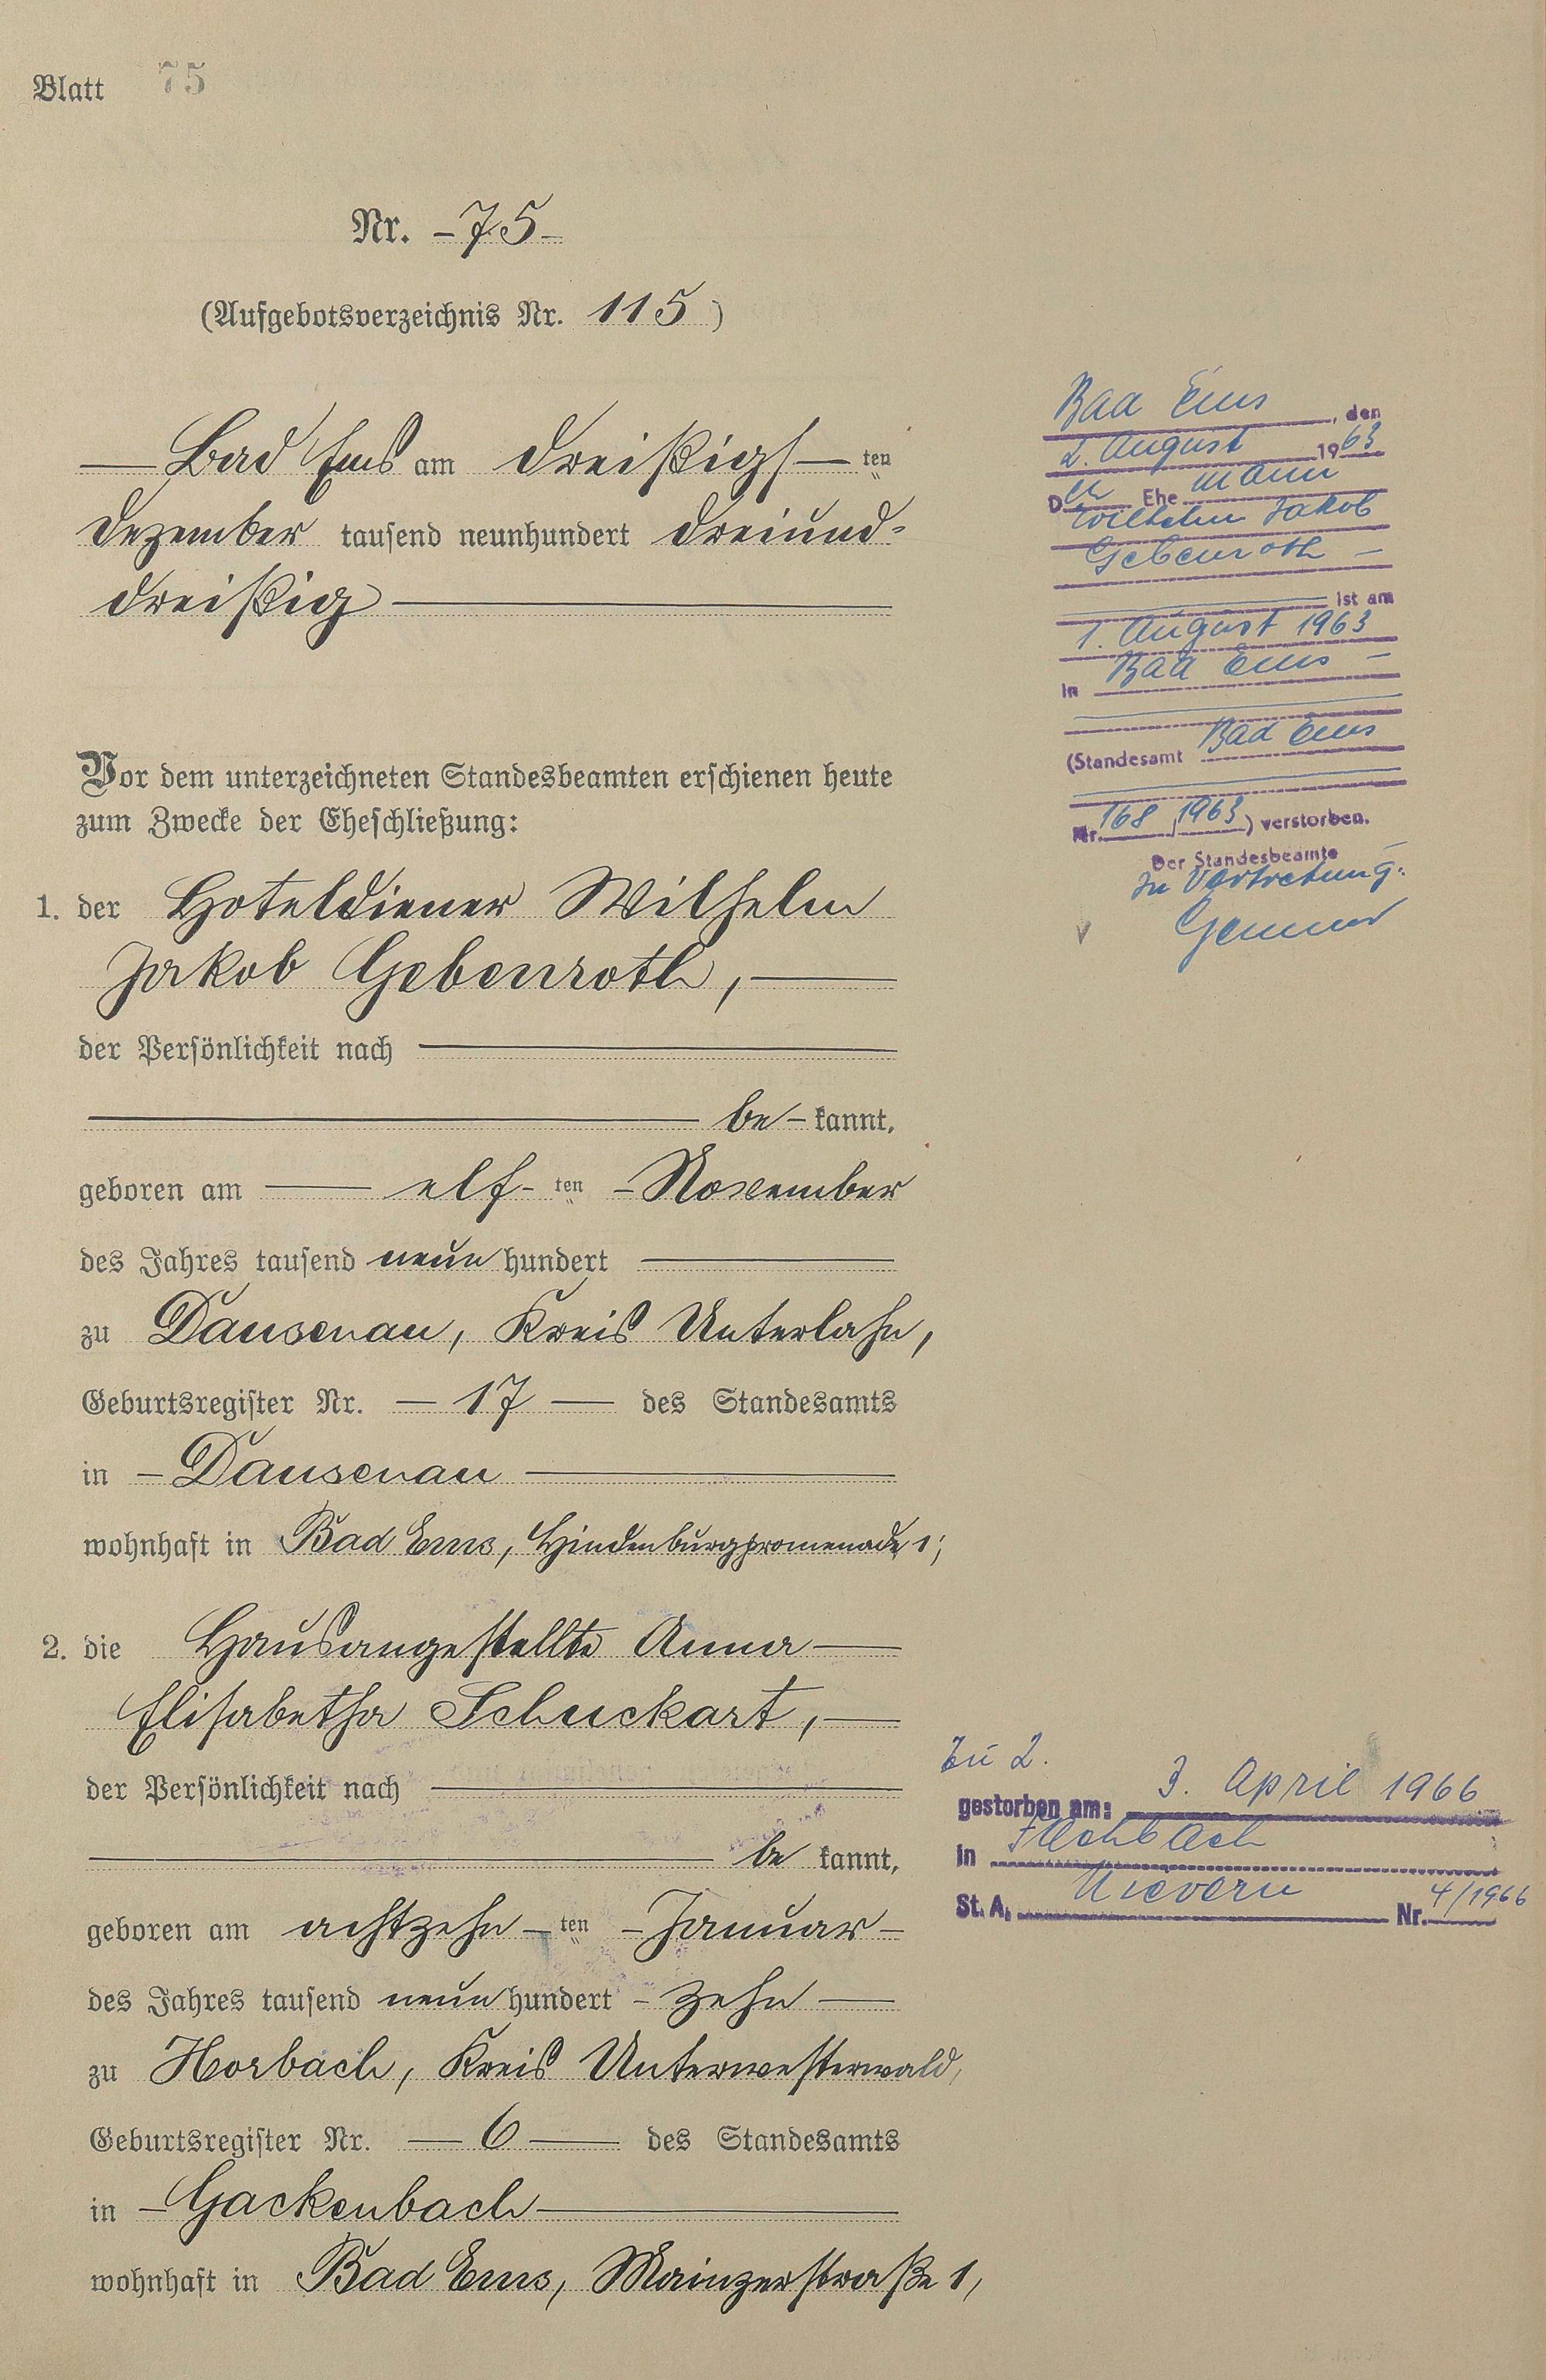 Blatt 75
Nr. – 75 –
(Aufgebotsverzeichnis Nr. 115)
— Bad Ems am dreißigs — ten
Dezember tausend neunhundert dreiund-
dreißig —
Vor dem unterzeichneten Standesbeamten erschienen heute
zum Zwecke der Eheschließung:
1. der Hoteldiener Wilhelm
Jakob Gebenroth, —
der Persönlichkeit nach —
— be – kannt,
geboren am — elf - ten – November
des Jahres tausend neun hundert —
zu Dausenau, Kreis Unterlahn,
Geburtsregister Nr. — 17 — des Standesamts
in – Dausenau —
wohnhaft in Bad Ems, Hindenburgpromenade 1;
2. die Hausangestellte Anna —
Elisabetha Schuckart, —
der Persönlichkeit nach —
— be kannt,
geboren am achtzehn – ten – Januar –
des Jahres tausend neun hundert – zehn —
zu Horbach, Kreis Unterwesterwald,
Geburtsregister Nr. — 6 — des Standesamts
in – Gackenbach —
wohnhaft in Bad Ems, Mainzerstraße 1,
Bad Ems, den
2. August 1963
Der Ehe mann
Wilhelm Jakob
Gebenroth –
ist am
1. August 1963
in Bad Ems –
(Standesamt Bad Ems
Nr. 168 / 1963) verstorben.
Der Standesbeamte
In Vertretung:
Zu 2.
gestorben am: 3. April 1966
in Fachbach
St. A. Nievern Nr. 4/1966